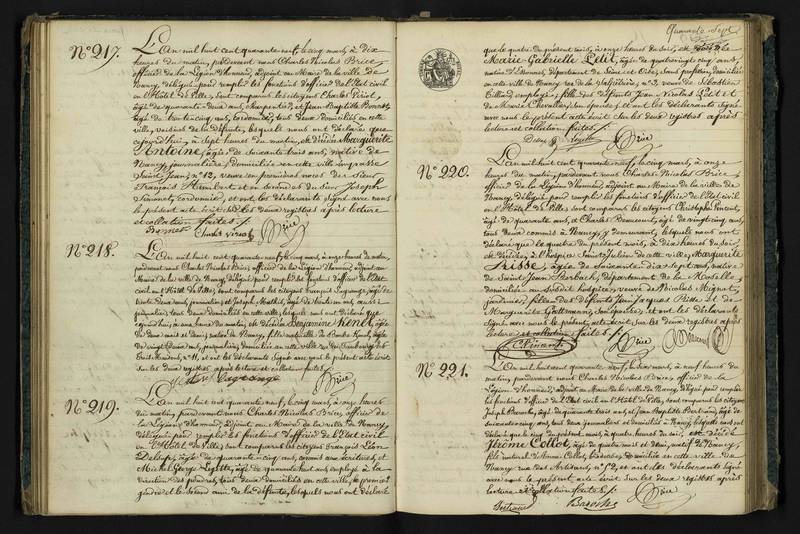 N° 217.
L'An mil huit cent quarante neuf, le cinq mars, à dix
heures du matin, pardevant nous Charles Nicolas Brice,
officier de la Légion d'honneur, adjoint au Maire de la ville de
Nancy, délégué pour remplir les fonctions d'officier de l'Etat civil
en l'Hôtel de Ville, sont comparus les citoyens Charles
âgé de quarante deux ans, charpentier, et Jean Baptiste
âgé de trente cinq ans, cordonnier, tous deux domiciliés en cette
ville, voisins de la défunte, lesquels nous ont déclaré que
cejourd'hui, à sept heures du matin, est décédée Marguerite
Antoine, âgée de soixante trois ans, native de
Nancy, journalière, domiciliée en cette ville
Saint Jean, n° 12, veuve en premières noces de sieur
François Humbert et en secondes du sieur Joseph
Simonet, cordonnier, et ont les déclarants signé avec nous
le présent acte écrit sur les deux registres après lecture
et collation faites.
Brice
N° 218.
L'An mil huit cent quarante neuf, le cinq mars, à onze heures du matin,
pardevant nous Charles Nicolas Brice, officier de la Légion d'honneur, adjoint au
Maire de la ville de Nancy, délégué pour remplir les fonctions d'officier de l'Etat
civil en l'Hôtel de Ville, sont comparus les citoyens François Lagrange, âgé de
trente deux ans, journalier, et Joseph
tous deux domiciliés en cette ville, lesquels nous ont déclaré que
est décédée Benjamine
de Nancy, fille naturelle de
de vingt deux ans, domiciliée en cette ville, rue du Faubourg des
Trois Maisons, n° 11, et ont les déclarants signé avec nous le présent acte écrit
sur les deux registres, après lecture et collation faites.
Lagrange
Brice
N° 219.
L'An mil huit cent quarante neuf, le cinq mars, à onze heures
du matin, pardevant nous Charles Nicolas Brice, officier de
la Légion d'honneur, adjoint au Maire de la ville de Nancy,
délégué pour remplir les fonctions d'officier de l'Etat civil
en l'Hôtel de Ville, sont comparus les citoyens François Léon
âgé de quarante cinq ans, commis aux écritures, et
Michel George âgé de quarante huit ans, employé à la
direction des poudres, tous deux domiciliés en cette ville, le premier
gendre et le second ami de la défunte, lesquels nous ont déclaré
Quarante Sept
que le quatre du présent mois, à onze heures du soir, est décédée
Marie Gabrielle Petit, âgée de quatre vingt cinq ans,
native d' département de Seine et Oise, sans profession, domiciliée
en cette ville de Nancy, rue de la Salpêtrière, n° 3, veuve de Sébastien
employé, fille des défunts Jean Nicolas Petit et
de Marie Chevallier, son épouse; et ont les déclarants signé
avec nous le présent acte écrit sur les deux registres après
lecture et collation faites.
Brice
N° 220.
L'An mil huit cent quarante neuf, le cinq mars, à onze
heures du matin, pardevant nous Charles Nicolas Brice,
officier de la Légion d'honneur, adjoint au Maire de la ville de
Nancy, délégué pour remplir les fonctions d'officier de l'Etat civil
en l'Hôtel de Ville, sont comparus les citoyens Christophe
âgé de quarante ans, et Charles âgé de vingt cinq ans,
tous deux commis à Nancy, y demeurant, lesquels nous ont
déclaré que le quatre du présent mois, à dix heures du soir,
est décédée, à l'hospice Saint Julien de cette ville, Marguerite
Risse, âgée de soixante dix sept ans, native
de Saint Jean Rorbach, département de la Moselle,
domiciliée au susdit hospice, veuve de Nicolas Mignot,
jardinier, fille des défunts Jean Jacques Risse et de
Marguerite son épouse; et ont les déclarants
signé avec nous le présent acte écrit sur les deux registres après
lecture et collation faites.
Brice
N° 221.
L'An mil huit cent quarante neuf, le cinq mars, à neuf heures du
matin, pardevant nous Charles Nicolas Brice, officier de la
Légion d'honneur, adjoint au Maire de la ville de Nancy, délégué pour remplir
les fonctions d'officier de l'Etat civil en l'Hôtel de Ville, sont comparus les citoyens
Joseph âgé de quarante trois ans, et Jean Baptiste Bertrand, âgé de
soixante cinq ans, tous deux journaliers et domiciliés à Nancy, lesquels nous ont
déclaré que le cinq du présent mois, à quatre heures du soir, est décédé
Jérôme Collot, âgé de quatre mois et demi, natif de Nancy,
fils naturel d'Anne Collot, domiciliée en cette ville de
Nancy rue des Artisans, n° 52, et ont les déclarants signé
avec nous le présent acte écrit sur les deux registres après
lecture et collation faites.
Brice